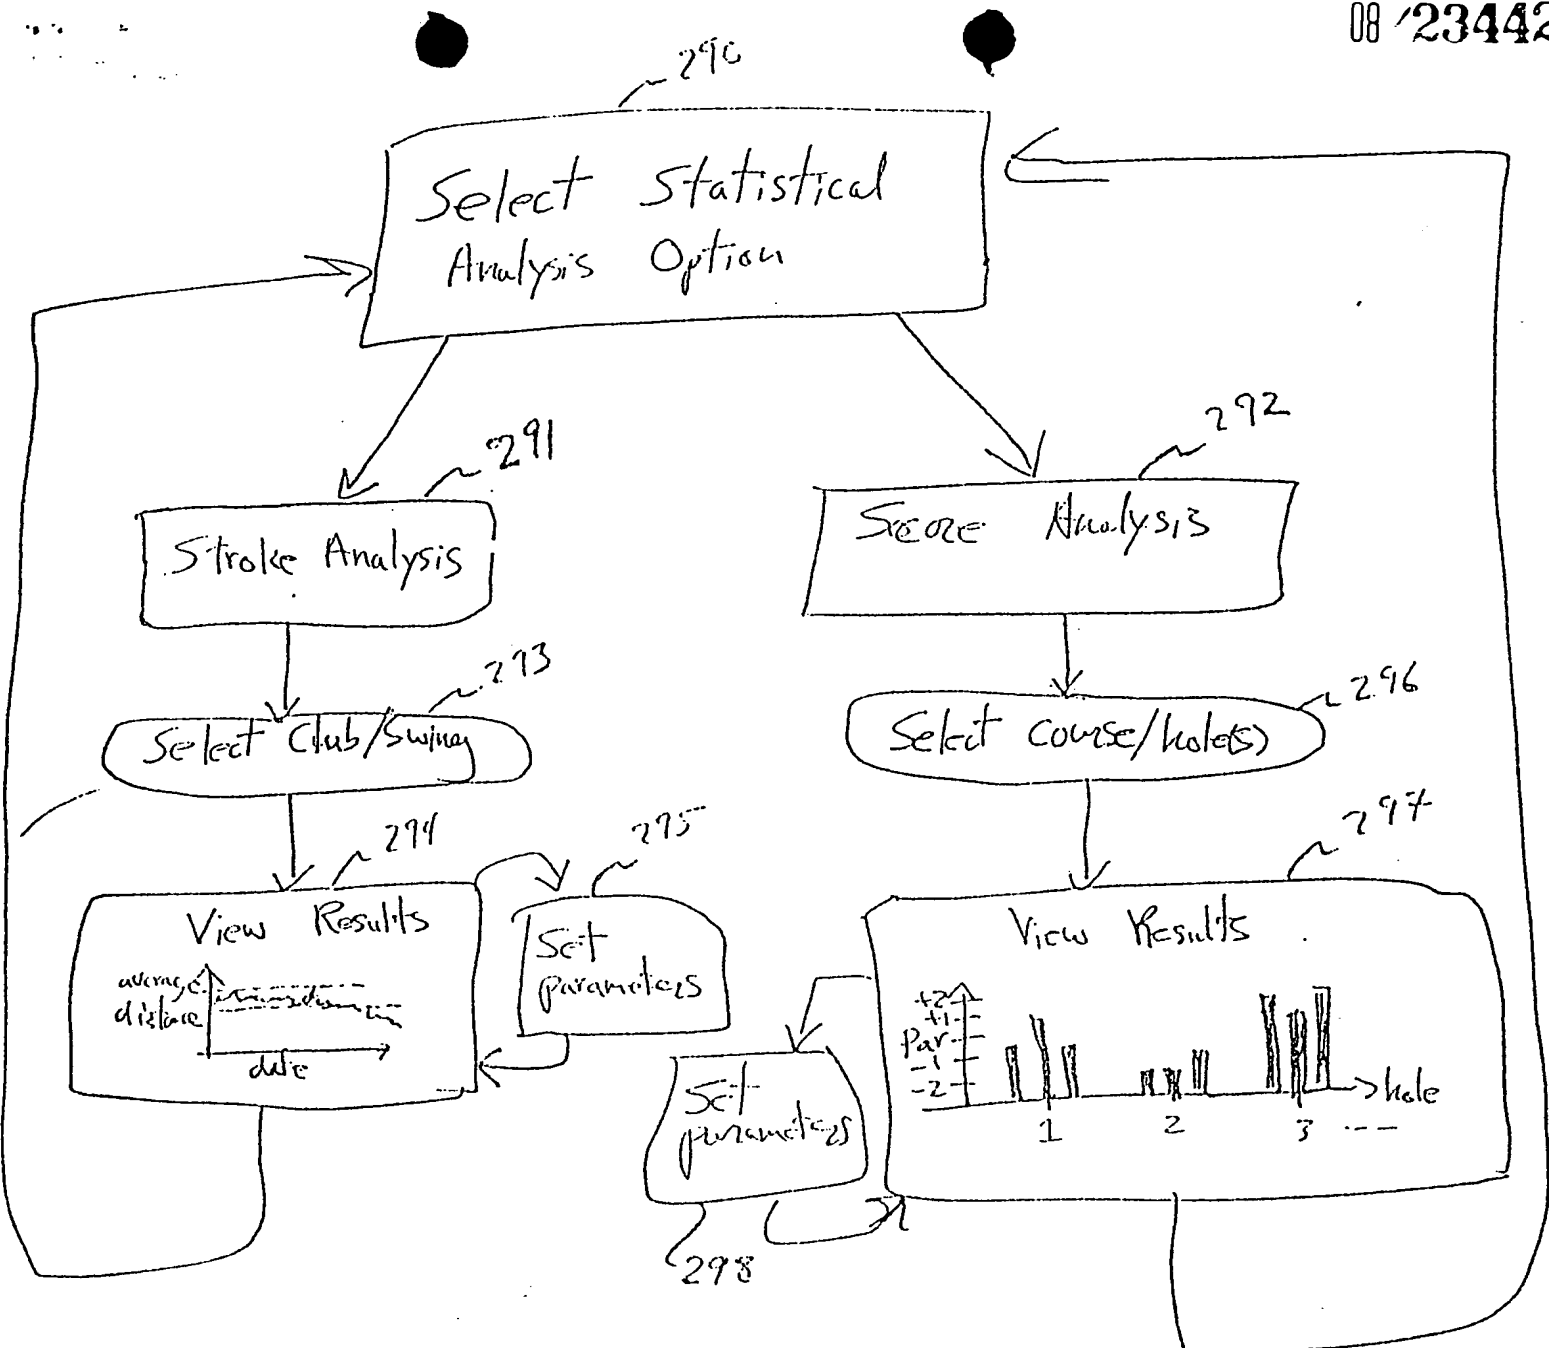 08/23442
290
Select Statistical
Analysis Option
291
292
Stroke Analysis
Score Analysis
293
296
Select Club/Swing
Select course/hole(s)
294
295
297
View Results
average
distance
date
Set
parameters
View Results
+2
+1
Par
-1
-2
hole
1 2 3 ---
Set
parameters
298